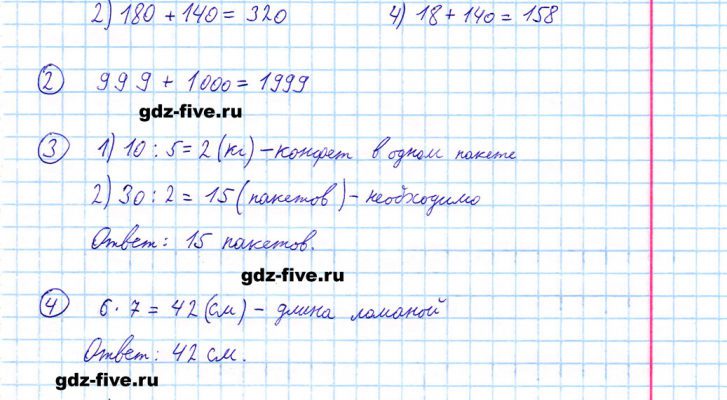 2) 180 + 140 = 320 4) 18 + 140 = 158
2 999 + 1000 = 1999
gdz-five.ru
3 1) 10 : 5 = 2 (кг) – конфет в одном пакете
2) 30 : 2 = 15 (пакетов) – необходимо
Ответ: 15 пакетов.
gdz-five.ru
4 6 · 7 = 42 (см) – длина ломаной
Ответ: 42 см.
gdz-five.ru